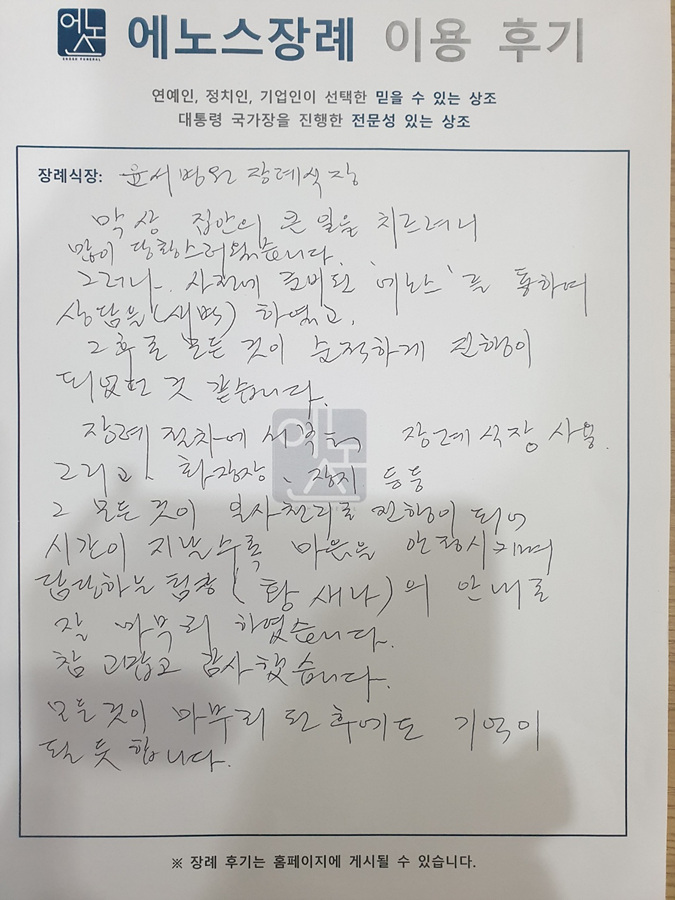 에노스
ENOSE FUNERAL
에노스장례 이용 후기
연예인, 정치인, 기업인이 선택한 믿을 수 있는 상조
대통령 국가장을 진행한 전문성 있는 상조
장례식장: 윤서병원 장례식장
막상 집안의 큰 일을 치르려니
많이 당황스러웠습니다.
그러나 사전에 준비된 '에노스'를 통하여
상담을(새벽) 하였고,
그후로 모든 것이 순적하게 진행이
되었던 것 같습니다.
장례 절차에서부터 장례식장 사용.
그리고, 화장장, 장지 등등
그 모든 것이 일사천리로 진행이 되어
시간이 지날수록 마음을 안정시키며
담당하는 팀장(황새나)의 안내로
잘 마무리 하였습니다.
참 고맙고 감사했습니다.
모든것이 마무리 된 후에도 기억이
될 듯 합니다.
※ 장례 후기는 홈페이지에 게시될 수 있습니다.